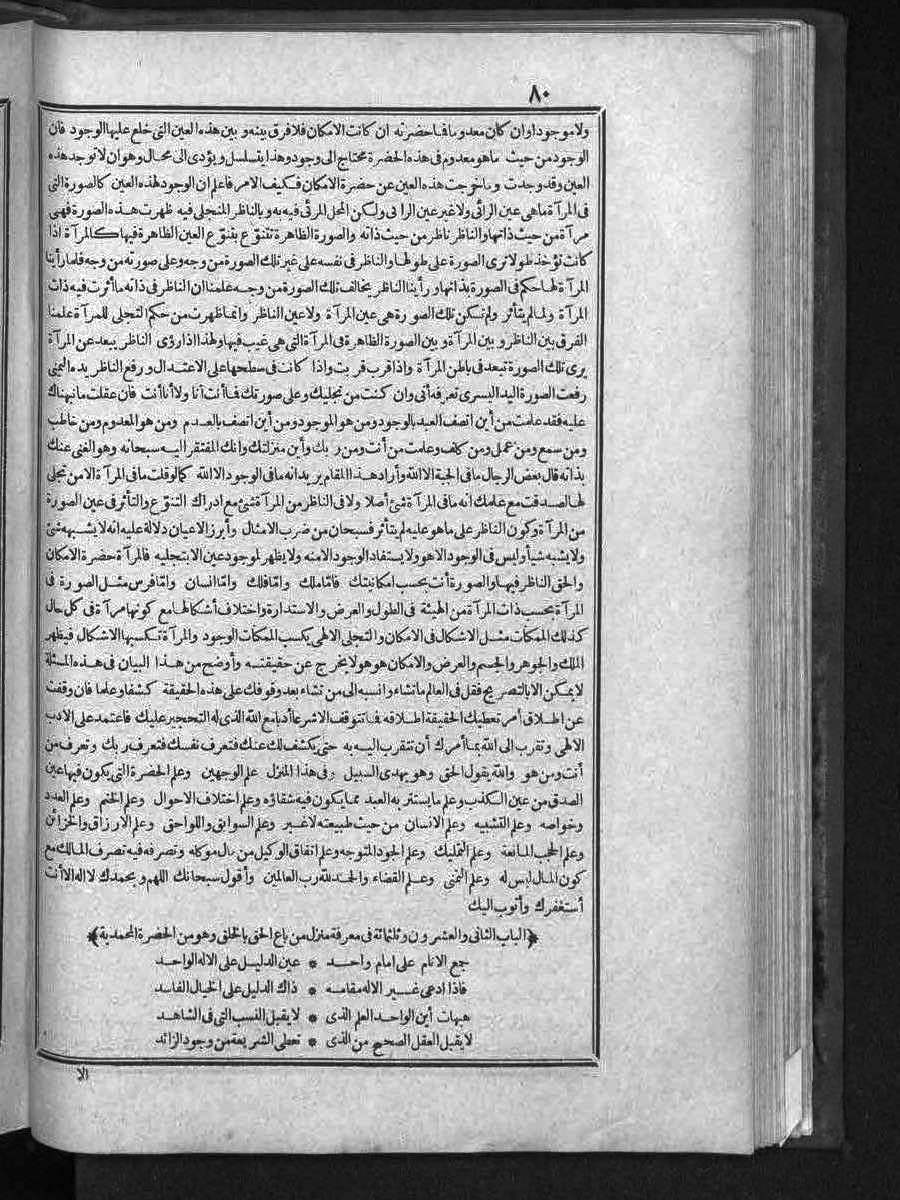 ٨٠
ولا موجودا وان كان معدوما فما حضرته ان كانت الامكان فلا فرق بينه و بين هذه العين التى خلع عليها الوجود فان
الوجود من حيث ماهو معدوم فى هذه الحضرة محتاج الى وجود وهذا يتسلسل و يؤدى الى محال وهو ان لا توجد هذه
العين وقد وجدت وماخرجت هذه العين عن حضرة الامكان فكيف الامر فاعلم ان الوجود لهذه العين كالصورة التى
فى المرآة ماهى عين الرائى ولا غير عين الرائى ولكن المحل المرئى فيه به و بالناظر المتجلى فيه ظهرت هذه الصورة فهى
مرآة من حيث ذاتها والناظر ناظر من حيث ذاته والصورة الظاهرة تتنوّع بتنوّع العين الظاهرة فيها كالمرآة اذا
كانت تؤخذ طولا ترى الصورة على طولها والناظر فى نفسه على غير تلك الصورة من وجه وعلى صورته من وجه فلما رأينا
المرآة لها حكم فى الصورة بذاتها ورأينا الناظر يخالف تلك الصورة من وجه علمنا ان الناظر فى ذاته ما أثرت فيه ذات
المرآة ولما لم يتأثر ولم تكن تلك الصورة هى عين المرآة ولا عين الناظر وانما ظهرت من حكم التجلى للمرآة علمنا
الفرق بين الناظر و بين المرآة و بين الصورة الظاهرة فى المرآة التى هى غيب فيها ولهذا اذا رؤى الناظر يبعد عن المرآة
يرى تلك الصورة تبعد فى باطن المرآة واذا قرب قربت واذا كانت فى سطحها على الاعتدال ورفع الناظر يده اليمنى
رفعت الصورة اليد اليسرى تعرفه أنى وان كنت من تجليك وعلى صورتك فما أنت أنا ولا أنا أنت فان عقلت مانبهناك
عليه فقد علمت من أين اتصف العبد بالوجود ومن هو الموجود ومن أين اتصف بالعدم ومن هو المعدوم ومن خاطب
ومن سمع ومن عمل ومن كلف وعلمت من أنت ومن ربك وأين منزلتك وانك المفتقر اليه سبحانه وهو الغنى عنك
بذاته قال بعض الرجال مافى الجبة الا الله وأراد هذا المقام يريد انه مافى الوجود الا الله كما لو قلت مافى المرآة الا من تجلى
لها لصدقت مع علمك انه مافى المرآة شئ أصلا ولا فى الناظر من المرآة شئ مع ادراك التنوّع والتأثر فى عين الصورة
من المرآة وكون الناظر على ماهو عليه لم يتأثر فسبحان من ضرب الامثال وأبرز الاعيان دلالة عليه انه لا يشبهه شئ
ولا يشبه شيأ وليس فى الوجود الا هو ولا يستفاد الوجود الا منه ولا يظهر لموجود عين الا بتجليه فالمرآة حضرة الامكان
والحق الناظر فيها والصورة أنت بحسب امكانيتك فامّا ملك وامّا فلك وامّا انسان وامّا فرس مثل الصورة فى
المرآة بحسب ذات المرآة من الهيئة فى الطول والعرض والاستدارة واختلاف أشكالها مع كونها مرآة فى كل حال
كذلك الممكنات مثل الاشكال فى الامكان والتجلى الالهى يكسب الممكنات الوجود والمرآة تكسبها الاشكال فيظهر
الملك والجوهر والجسم والعرض والامكان هو هو لا يخرج عن حقيقته وأوضح من هذا البيان فى هذه المسئلة
لا يمكن الا بالتصريح فقل فى العالم ماتشاء وانسبه الى من تشاء بعد وقوفك على هذه الحقيقة كشفا وعلما فان وقفت
عن اطلاق أمر تعطيك الحقيقة اطلاقه فما تتوقف الا شرعا أدبا مع الله الذى له التحجير عليك فاعتمد على الادب
الالهى وتقرب الى الله بما أمرك أن تتقرب اليه به حتى يكشف لك عنك فتعرف نفسك فتعرف ربك وتعرف من
أنت ومن هو والله يقول الحق وهو يهدى السبيل وفى هذا المنزل علم الوجهين وعلم الحضرة التى يكون فيها عين
الصدق من عين الكذب وعلم مايستتر به العبد مما يكون فيه شقاؤه وعلم اختلاف الاحوال وعلم الختم وعلم العدد
وخواصه وعلم التشبيه وعلم الانسان من حيث طبيعته لا غير وعلم السوابق واللواحق وعلم الارزاق والخزائن
وعلم الحجب المانعة وعلم التمليك وعلم الجود المتوجه وعلم اتفاق الوكيل من مال موكله وتصرفه فيه تصرف المالك مع
كون المال ليس له وعلم التمنى وعلم القضاء والحمد لله رب العالمين وأقول سبحانك اللهم و بحمدك لا اله الا أنت
أستغفرك وأتوب اليك
﴿الباب الثانى والعشرون وثلثمائة فى معرفة منزل من باع الحق بالخلق وهو من الحضرة المحمدية﴾
جمع الانام على امام واحد * عين الدليل على الاله الواحد
فاذا ادعى غير الاله مقامه * ذاك الدليل على الخيال الفاسد
هيهات أين الواحد العلم الذى * لا يقبل النسب التى فى الشاهد
لا يقبل العقل الصحيح من الذى * تعطى الشريعة من وجود الزائد
الا